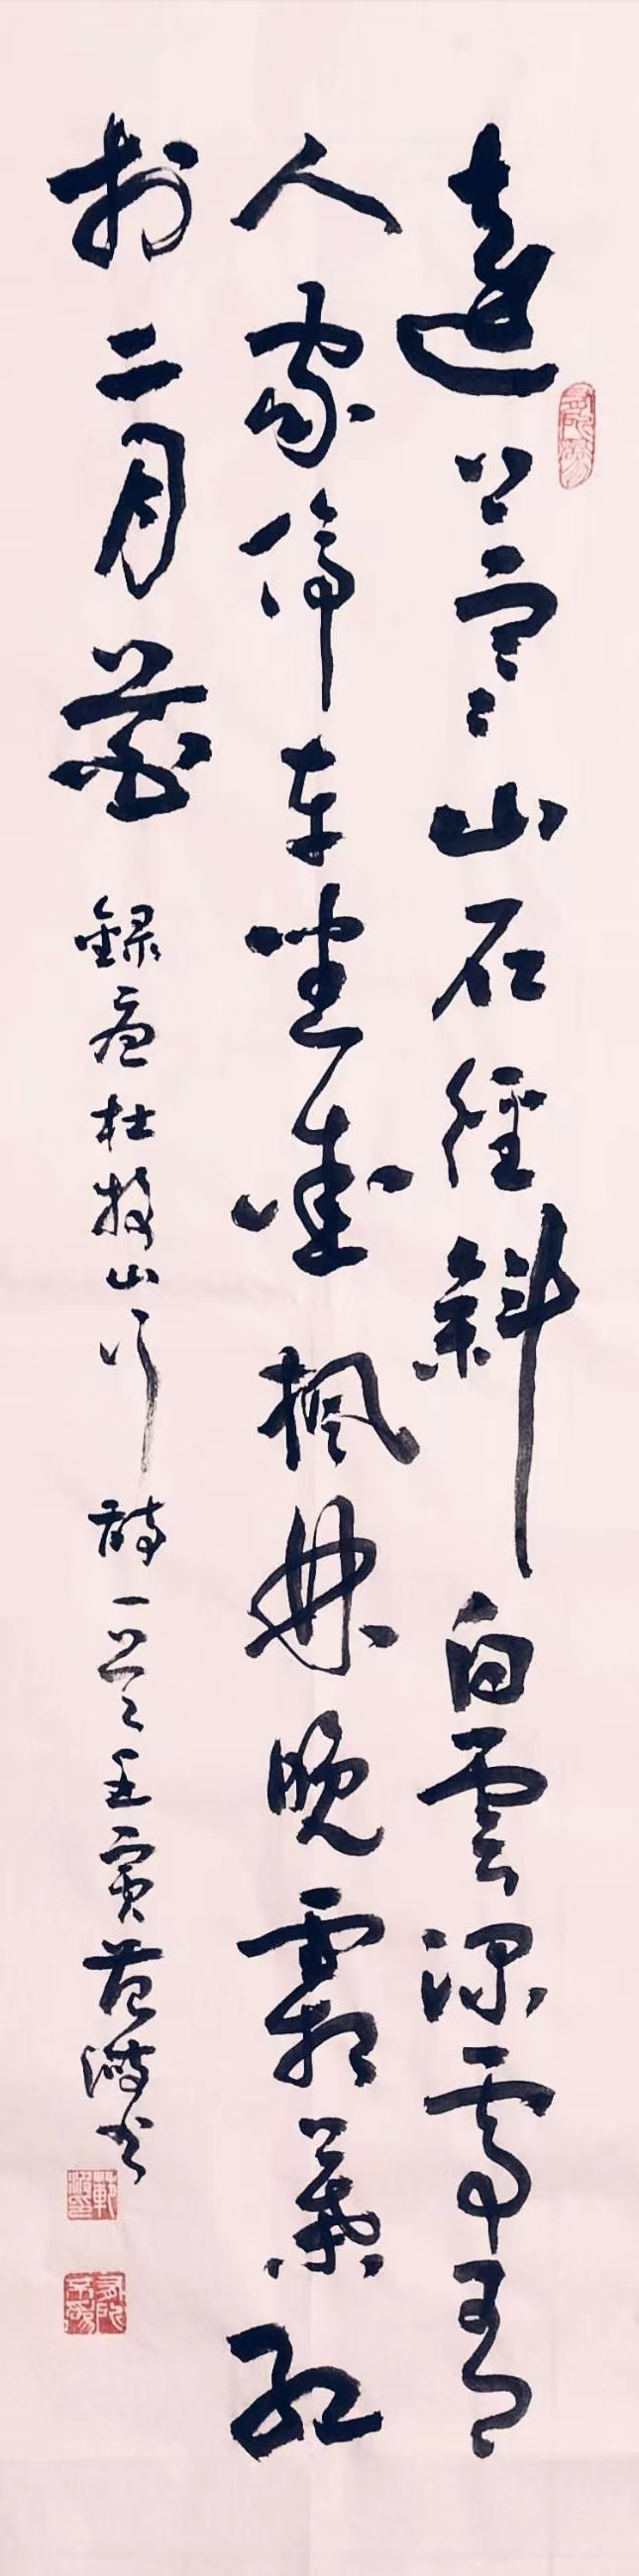 遠上寒山石徑斜白雲深處有
人家停車坐愛楓林晚霜葉紅
於二月花 錄唐杜牧山行詩一首 壬寅 书